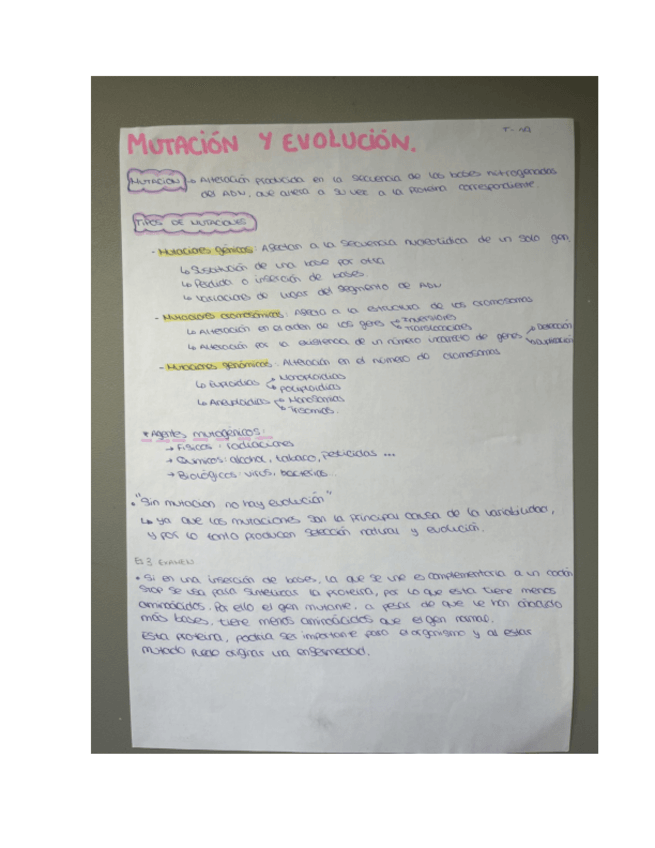 MUTACIÓN Y EVOLUCIÓN.
MUTACIÓN → Alteración producida en la secuencia de las bases nitrogenadas
del ADN, que altera a su vez a la proteína correspondiente.
TIPOS DE MUTACIONES
- Mutaciones génicas: Afectan a la secuencia nucleotídica de un solo gen.
↳ Sustitución de una base por otra
↳ Pérdida o inserción de bases.
↳ Variaciones de lugar del segmento de ADN
- Mutaciones cromosómicas: Afecta a la estructura de los cromosomas
↳ Alteración en el orden de los genes Inversiones
Translocaciones
↳ Alteración por la existencia de un número incorrecto de genes
- Mutaciones genómicas: Alteración en el número de cromosomas
↳ Euploidías Monoploidías
poliploidías
↳ Aneuploidías Monosomías
Trisomías.
* Agentes mutagénicos:
→ Físicos: radiaciones
→ Químicos: alcohol, tabaco, pesticidas ...
→ Biológicos: virus, bacterias...
• "Sin mutación no hay evolución"
↳ ya que las mutaciones son la principal causa de la variabilidad,
y por lo tanto producen selección natural y evolución.
EJ EXAMEN
• Si en una inserción de bases, la que se une es complementaria a un codón
stop se usa para sintetizar la proteína, por lo que esta tiene menos
aminoácidos. Por ello el gen mutante, a pesar de que se han añadido
más bases, tiene menos aminoácidos que el gen normal.
Esta proteína, podría ser importante para el organismo y al estar
mutado puede originar una enfermedad.